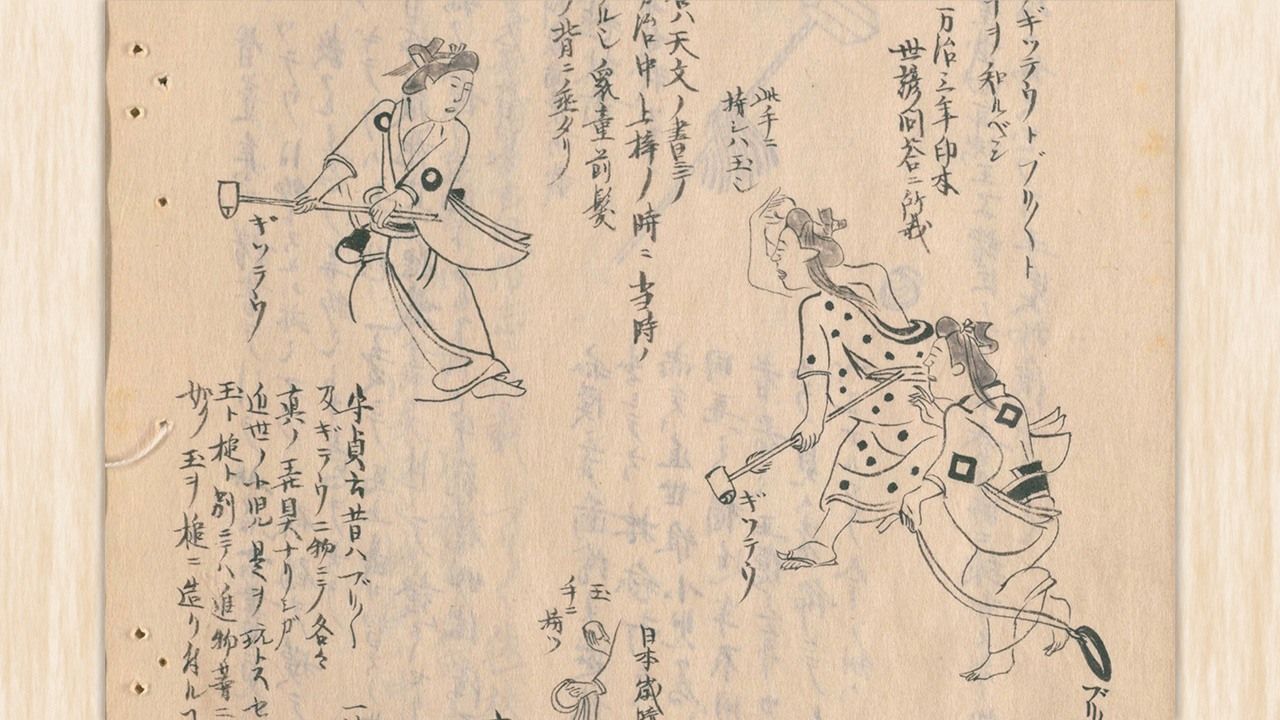 ギツテウトブリ〱ト
ヲ知ルベシ
万治三年印本
世諺問答ニ所載
此手ニ
持シハ玉シ
ハ天文ノ書ニテ
治中上梓ノ時ニ当時ノ
ルシ 童前髪
ノ背ニ垂タリ
ギツテウ
ギツテウ
ブリ
日本歳時
玉
手ニ
持ツ
貞云昔ハブリ〱
及ギテウニ物ニテ各々
真ノ玩具ナリシガ
近世ノ小児是ヲ玩トスセ
玉ト槌ト別ニテハ進物等ニ
妙 玉ヲ槌ニ造リ付ル